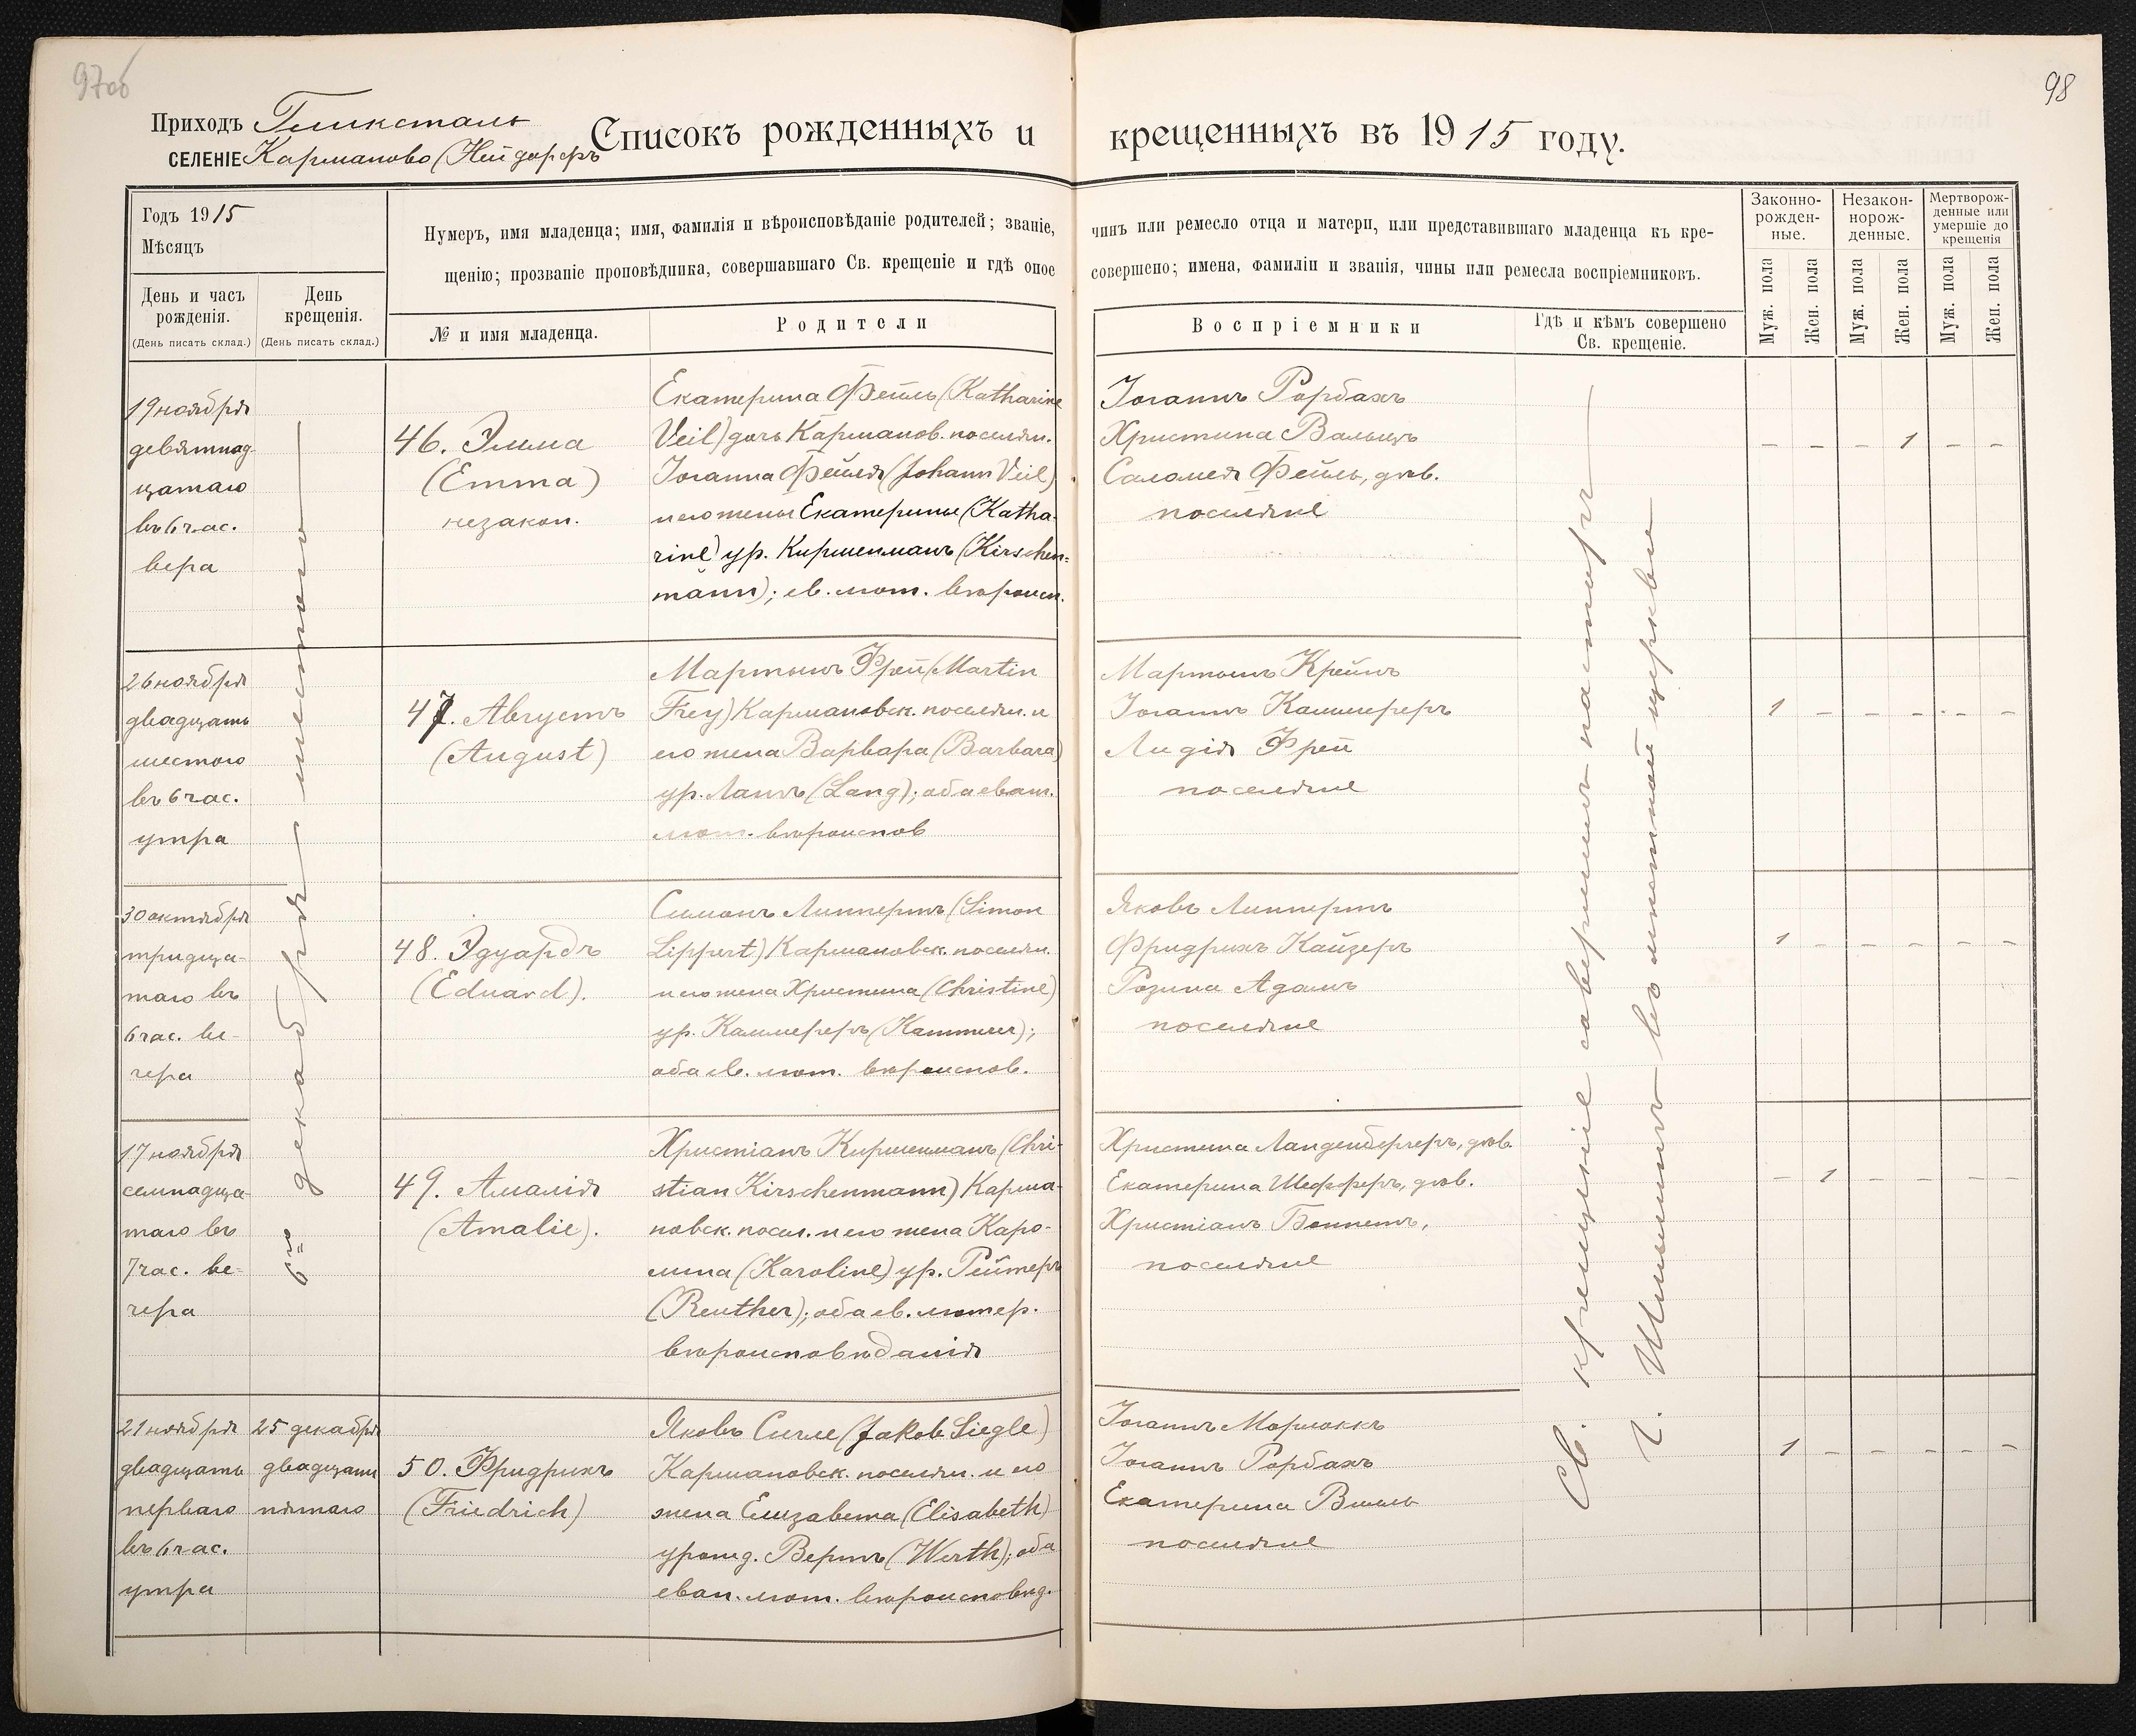 97об
98
Приходъ Глюкстали
СЕЛЕНІЕ Карманово (Нейдорфъ
Списокъ рожденныхъ и крещенныхъ въ 1915 году.
Годъ 1915
Мѣсяцъ
День и часъ рожденія.
(День писать склад.)
День крещенія.
(День писать склад.)
Нумеръ, имя младенца; имя, фамилія и вѣроисповѣданіе родителей; званіе, чинъ или ремесло отца и матери, или представившаго младенца къ кре-
щенію; прозваніе проповѣдника, совершавшаго Св. крещеніе и гдѣ оное совершено; имена, фамиліи и званія, чины или ремесла воспріемниковъ.
№ и имя младенца.
Родители
Воспріемники
Гдѣ и кѣмъ совершено
Св. крещеніе.
Законно-
рожден-
ные.
Незакон-
норож-
денные.
Мертворож-
денные или
умершіе до
крещенія
Муж. пола
Жен. пола
Муж. пола
Жен. пола
Муж. пола
Жен. пола
19 ноября
девятнад
цатаго
въ 6 час.
вера
46. Эмма
(Emma)
незакон.
Екатерина Фейль (Katharine
Veil) дочь Карманов. поселян.
Іоганна Фейля (Johann Veil)
и его жены Екатерины (Katha-
rine) ур. Киршенманъ (Kirschen-
mann); ев. лют. вѣроисп.
Іоганнъ Рорбахъ
Христина Вальцъ
Саломея Фейль, дѣв.
поселяне
– – – 1 – –
26 ноября
двадцать
шестого
въ 6 час.
утра
47. Августъ
(August)
Мартынъ Фрей (Martin
Frey) Кармановск. поселян. и
его жена Варвара (Barbara)
ур. Лангъ (Lang); оба еванг.
лют. вѣроиспов
Мартынъ Крейнъ
Іоганнъ Каммереръ
Лидія Фрей
поселяне
1 – – – – –
30 октября
тридца-
таго въ
6 час. ве-
чера
48. Эдуардъ
(Eduard).
Симонъ Липпертъ (Simon
Lippert) Кармановск. поселян.
и его жена Христина (Christine)
ур. Каммереръ (Kammerer);
оба ев. лют. вѣроиспов.
Яковъ Липпертъ
Фридрихъ Кайзеръ
Розина Адамъ
поселяне
1 – – – – –
17 ноября
семнадца-
таго въ
7 час. ве-
чера
49. Амалія
(Amalie).
Христіанъ Киршенманъ (Chri-
stian Kirschenmann) Карма-
новск. посел. и его жена Каро-
лина (Karoline) ур. Рейтеръ
(Reuther); оба ев. лютер.
вѣроисповѣданія
Христина Ланденбергеръ, дѣв.
Екатерина Шефферъ, дѣв.
Христіанъ Боннетъ,
поселяне
– 1 – – – –
6го декабря шестого
21 ноября
двадцать
перваго
въ 6 час.
утра
25 декабря
двадцать
пятаго
50. Фридрихъ
(Friedrich)
Яковъ Сигле (Jakob Siegle)
Кармановск. поселян. и его
жена Елизавета (Elisabeth)
урожд. Вертъ (Werth); оба
еван. лют. вѣроисповѣд.
Іоганнъ Мормокъ
Іоганнъ Рорбахъ
Екатерина
поселяне
1 – – – – –
Св. крещеніе совершилъ пасторъ
Г. Шиллингъ въ мѣстной церкви